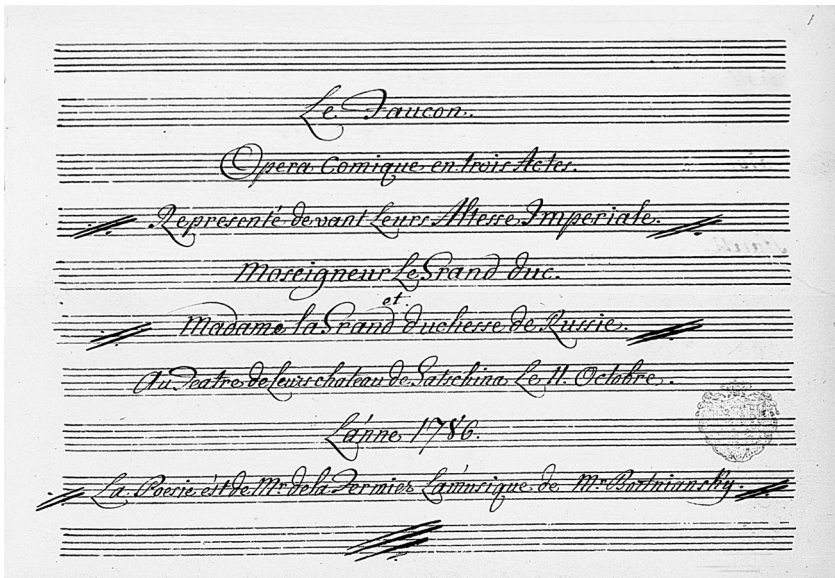 1
Le Faucon.
Opera Comique en trois Actes.
Representé devant Leurs Altesse Imperiale.
Moseigneur Le Grand duc.
et
Madame la Grand duchesse de Russie.
Au Teatre de Leurs chateau de Gatschina Le 11. Octobre.
L'anne 1786.
La Poesie ést de Mr. de la Fermier La musique de Mr. Bortniansky.